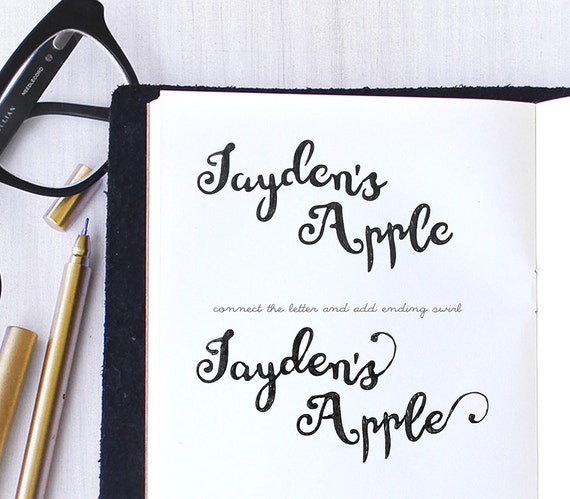 NEEDLECORD
Jayden's
Apple
connect the letter and add ending swirl
Jayden's
Apple